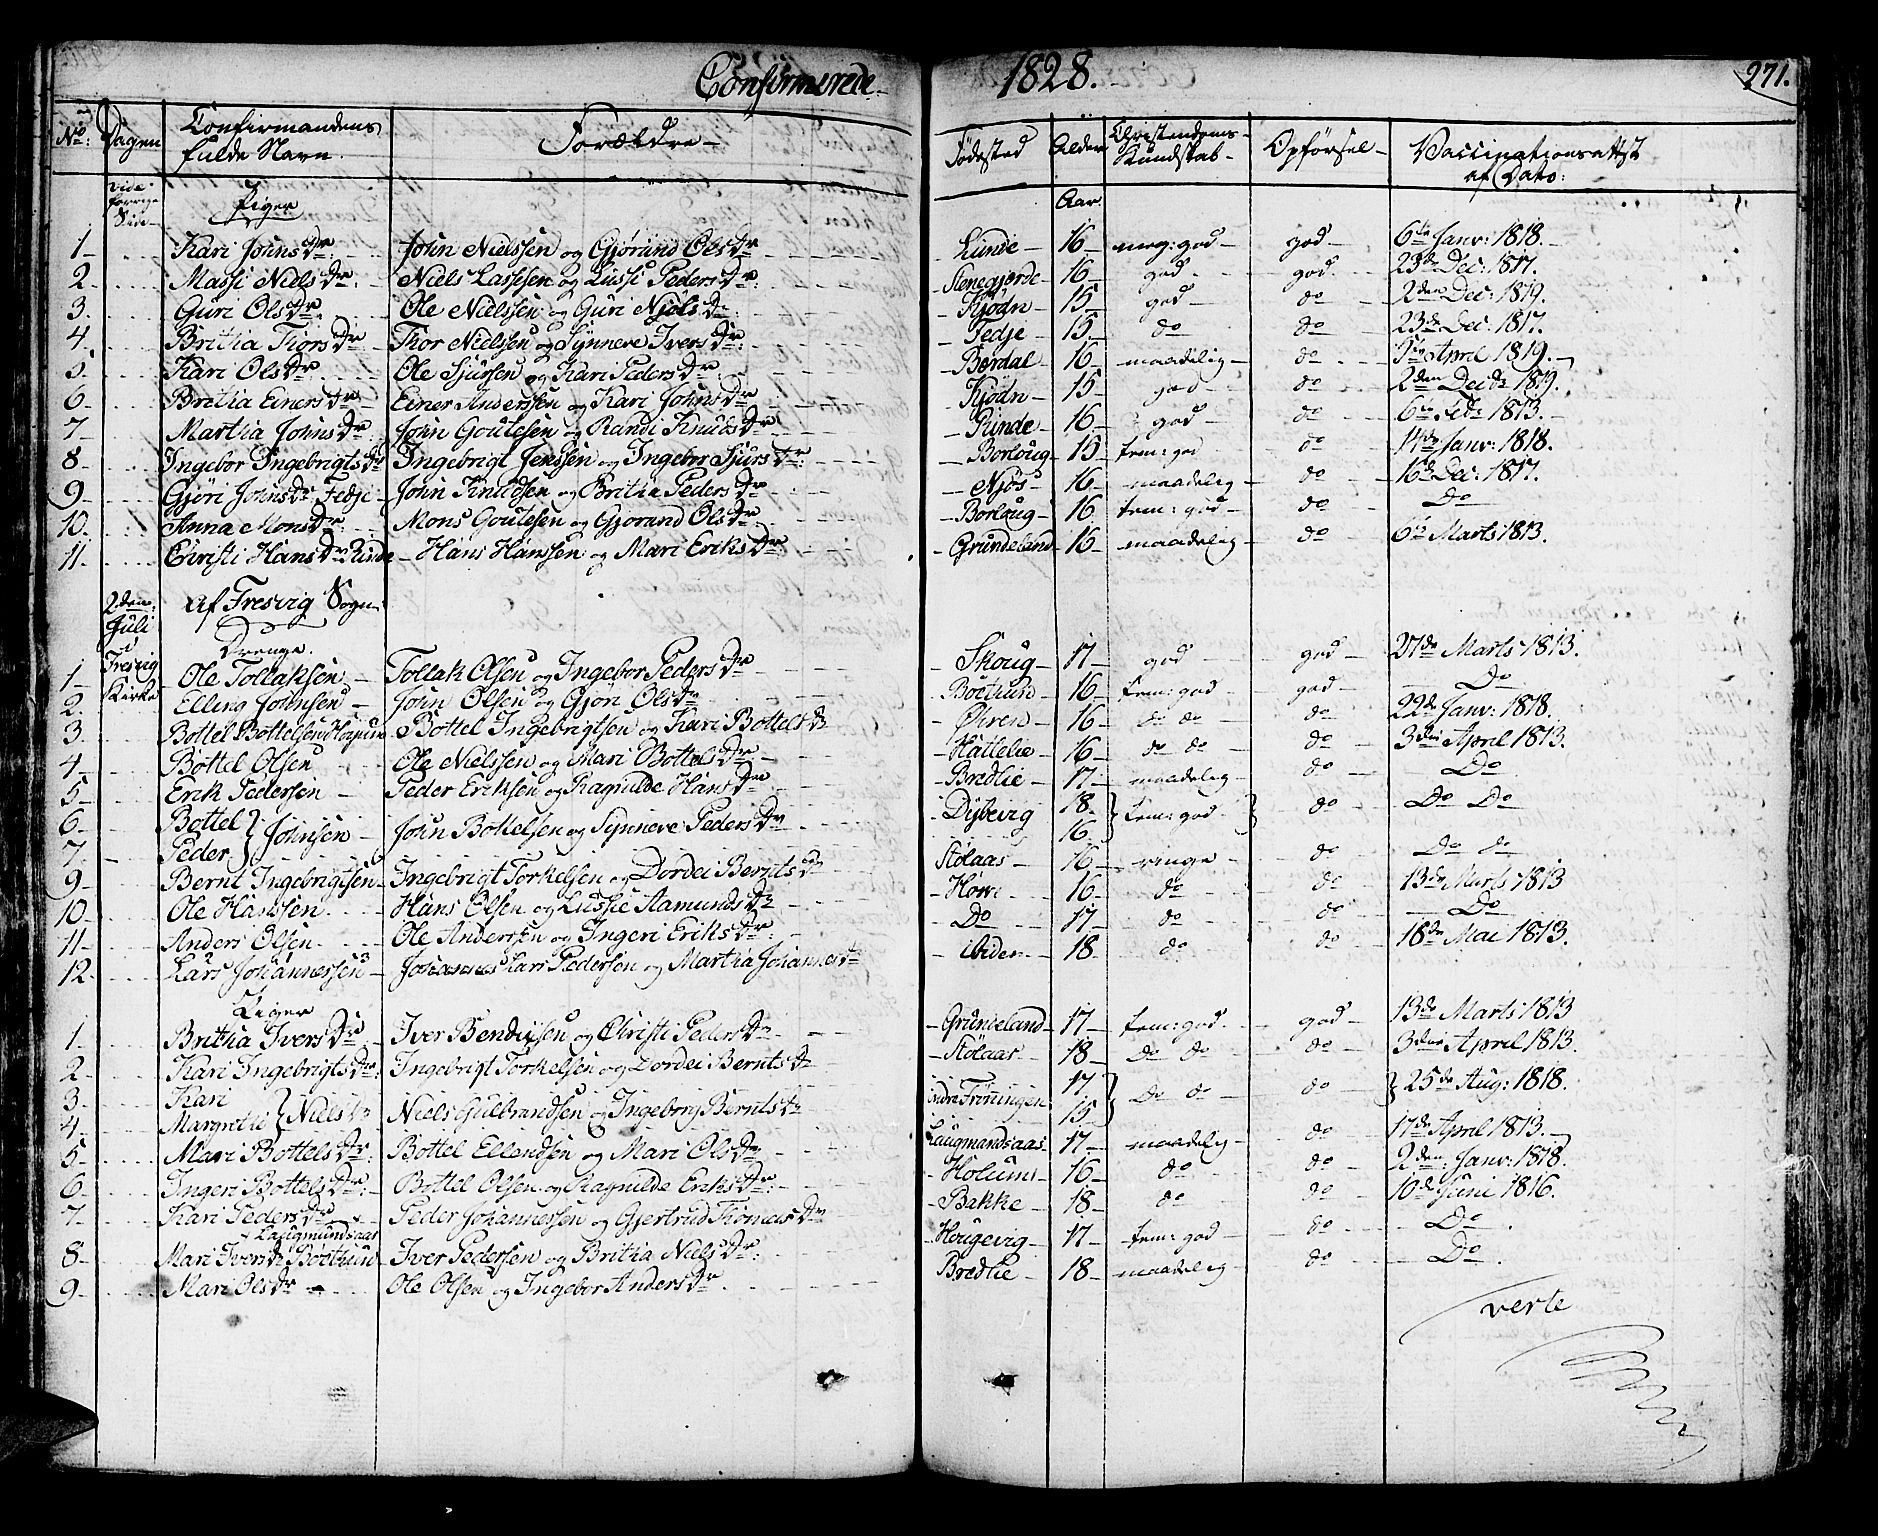 Confirmerede 1828. 271.
No: Dagen Confirmandens fulde Navn. Forældre Fødested Alder Christendoms Kundskab Opførsel Vaccinationsattst af Dato:
vide forrige Side Piger Aar
1 Kari JohnsDr. John Nielssen og Gjørund OlsDr Lunde 16 meg: god god 6te Janv: 1818.
2 Massi NielsDr. Niels Lassesen og Lussi PedersDr Stenegjerde 16 god god 23de Dec: 1817.
3. Guri OlsDr. Ole Nielssen og Guri NjølsDr Kjødn 15 god do 2den Dec: 1819.
4. Britha ThorsDr Thor Nielsen og Synneve IversDr. Fedje 15 do do 23de Dec: 1817.
5. Kari OlsDr. Ole Sjursen og Kari PedersDr Berdal 16 maadelig do April 1819.
6 Britha EinersDr Einer Anderssen og Kari JohnsDr Kjødn 15 god do 2den Decbr 1819.
7 Martha JohnsDr John Goutesen og Randi KnudsDr Rinde 16 god do 6te Feb: 1813.
8 Ingebor IngebrigtsDr Ingebrigt Jenssen og Ingebor SjursDr. Borloug 15 tem: god do 14de Janv: 1818.
9 Gjøri JohnsDr Fedje John Knudsen og Britha PedersDr Njøs 16 maadelig do 16de Dec: 1817.
10. Anna MonsDr. Mons Goutesen og Gjørund OlsDr Borloug 16 tem: god do Do
11. Christi HansDr Rinde Hans Hanssen og Mari EriksDr Grundeland 16 maadelig do 6te Marts 1813.
2den Juli i Fresvig Kirke Af Fresvig Sogn:
Drenge.
1 Ole Tollaksen Tollak Olsen og Ingebor PedersDr Skoug 17 god god 27de Marts 1813.
2. Elling Johnsen John Olsen og Gjøri OlsDr Bøthun 16 tem: god god Do
3. Bottel Bottelsen Bottel Ingebrigtsen og Kari BottelsDr Øiren 16 do do do 22de Janv: 1818.
4 Bottel Olsen Ole Nielssen og Mari BottelsDr Hattelie 16 do do do 3die April 1813.
5 Erik Pedersen Peder Eriksen og Ragnilde HansDr Bredlie 17 maadelig do Do
6 Bottel } Johnsen John Bottelsen og Synneve PedersDr Dybevig 18 } tem: god } do Do Do
7. Peder 16
9 Bernt Ingebrigtsen Ingebrigt Torkelsen og Dordei BerntsDr Stølaas 16 ringe do Do do
10. Ole Hanssen Hans Olsen og Lussie AamundsDr Hove 16 do do 13de Marts 1813
11 Anders Olsen Ole Anderssen og Ingeri EriksDr. Do 17 do do Do
12. Lars Johannessen Johannes Lars Pedersen og Martha JohannesDr ibidem 18 do do 18de Mai 1813.
Piger
1 Britha IversDr Iver Bendixsen og Christi PedersDr Grundeland 17 tem: god god 13de Marts 1813
2 Kari IngebrigtsDr. Ingebrigt Torkelsen og Dordei BerntsDr Stølaas 18 Do Do do 3die April 1813.
3 Kari } NielsDr Niels Gulbrandsen og Ingeborg BerntsDr indre Frøningen 17 } Do do do } 25de Aug: 1818.
4 Margrethe 15
5 Mari BottelsDr. Bottel Ellendsen og Mari OlsDr Laugmandsaas 17 maadelig do 17de April 1813.
6 Ingeri BottelsDr. Bottel Olsen og Ragnilde EriksDr. Holum 16 do do 2den Janv: 1818.
7 Kari PedersDr Laugmundsaas Peder Johannessen og Gjertrud Dr Bakke 18 do do 10de Juni 1816.
8 Mari IversDr Bøthun Iver Pedersen og Britha NielsDr. Hougevig 17 tem: god do Do
9 Mari OlsDr Ole Olsen og Ingebor AndersDr Bredlie 18 maadelig do Do
verte